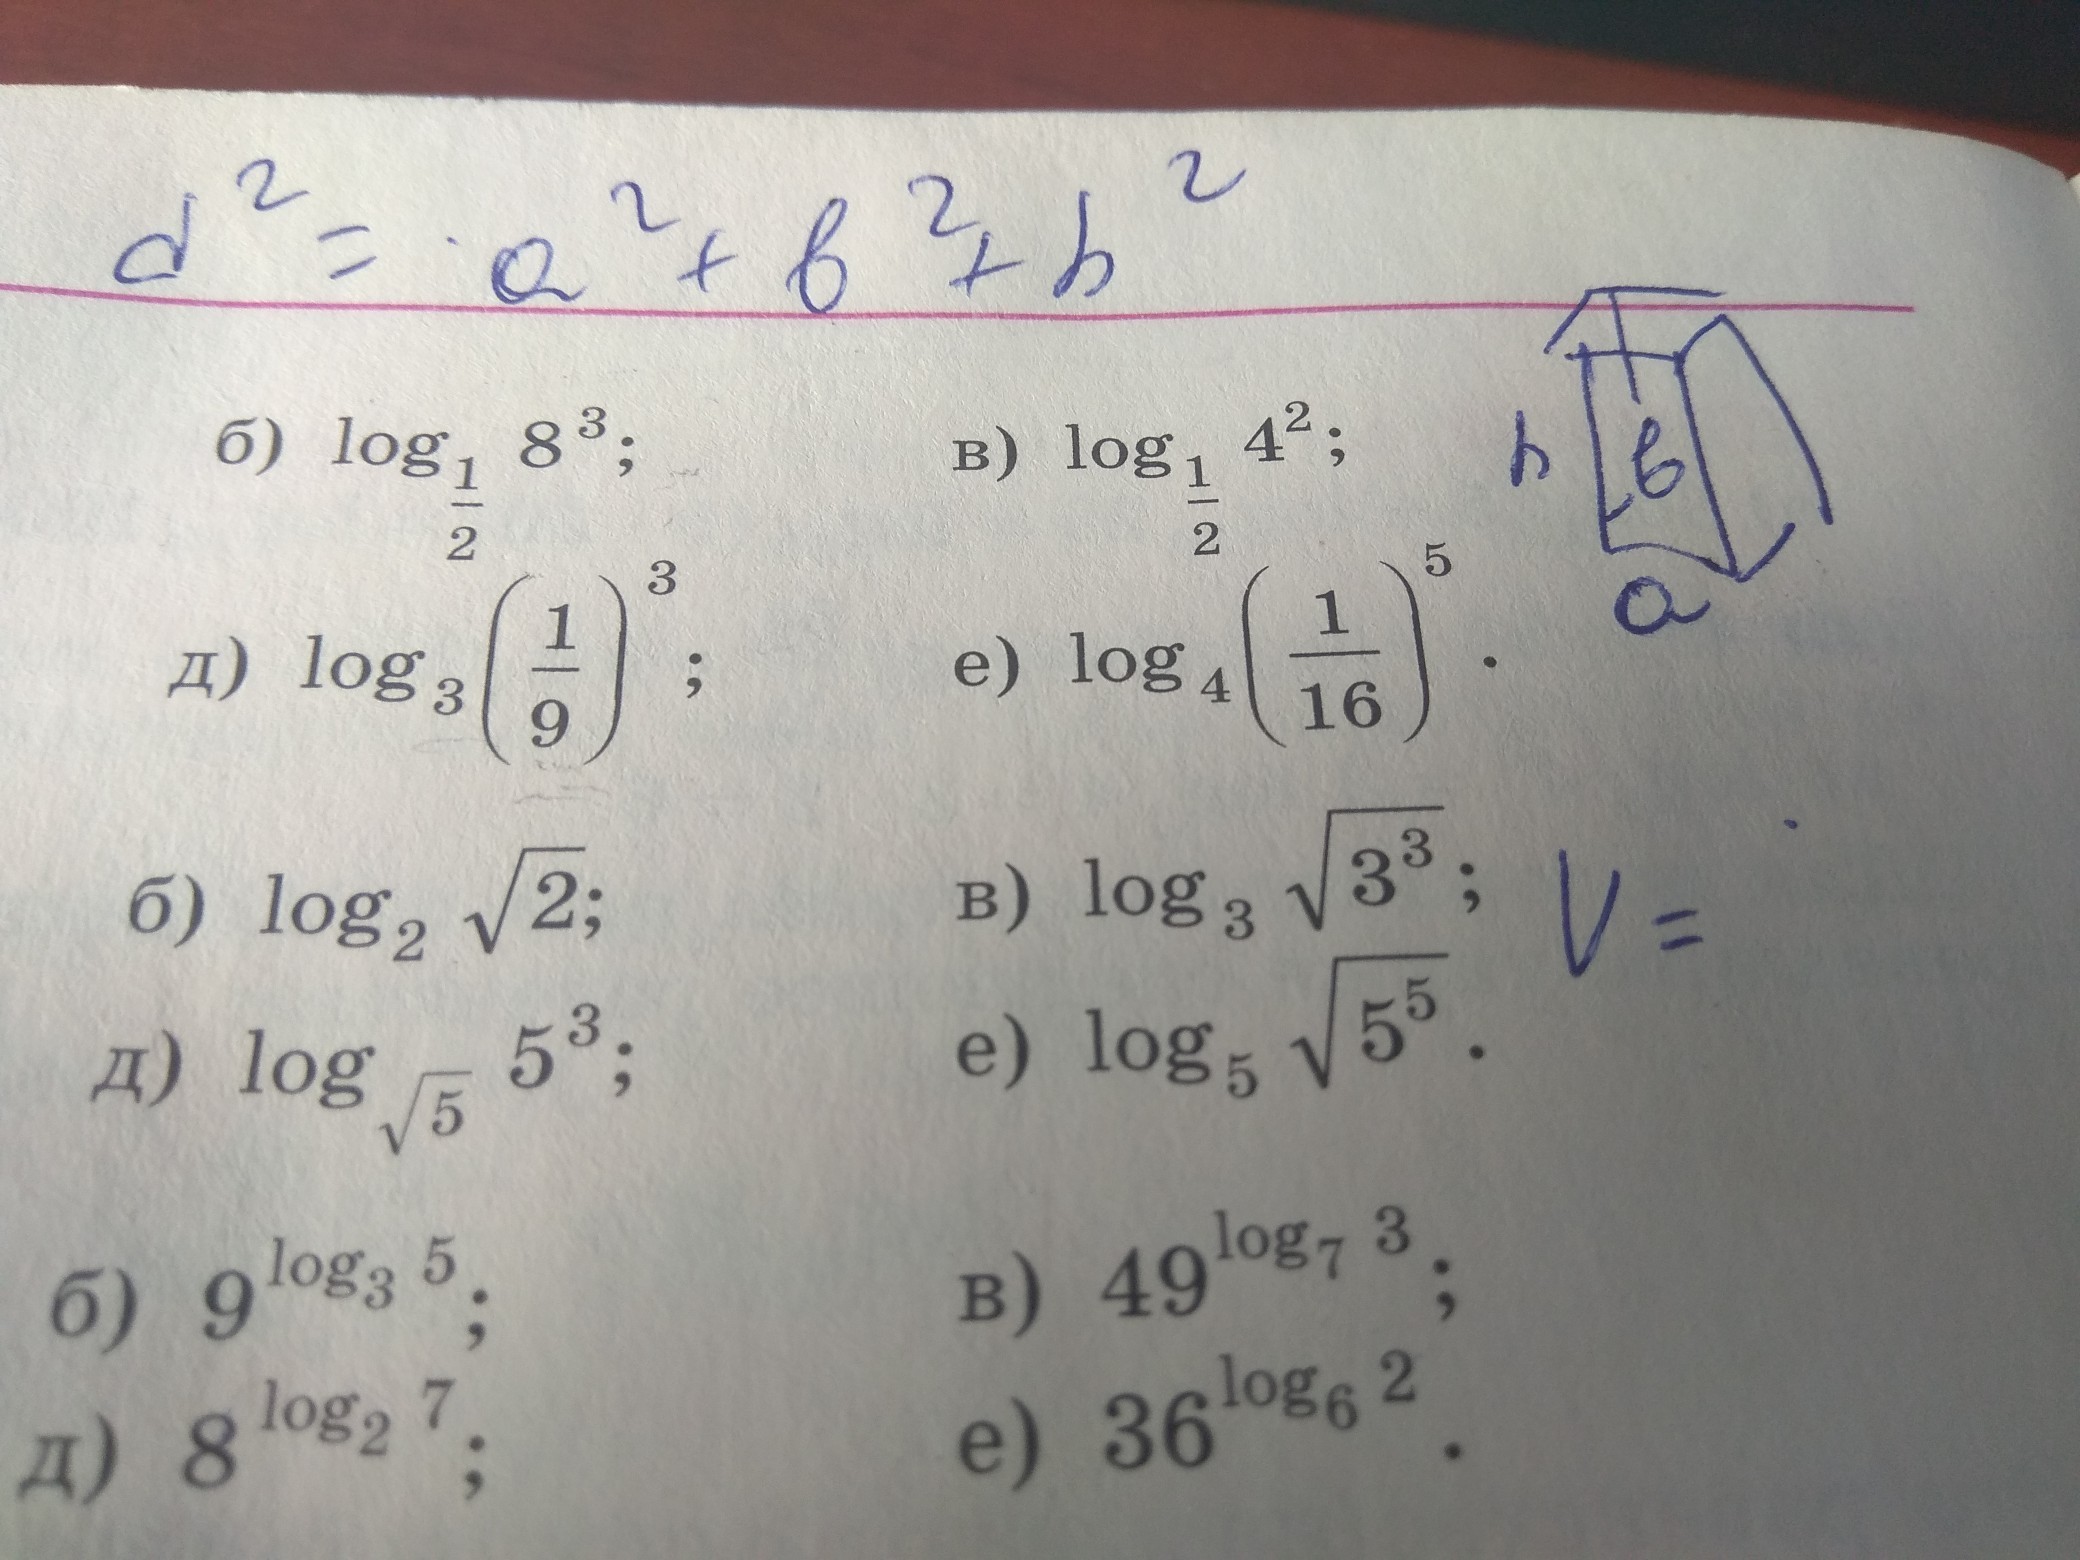 d² = a² + b² + h²
б) log_{1/2} 8³; в) log_{1/2} 4²;
h b
a
д) log₃ (1/9)³; е) log₄ (1/16)⁵.
б) log₂ √2; в) log₃ √(3³); V =
д) log_{√5} 5³; е) log₅ √(5⁵).
б) 9^{log₃ 5}; в) 49^{log₇ 3};
д) 8^{log₂ 7}; е) 36^{log₆ 2}.